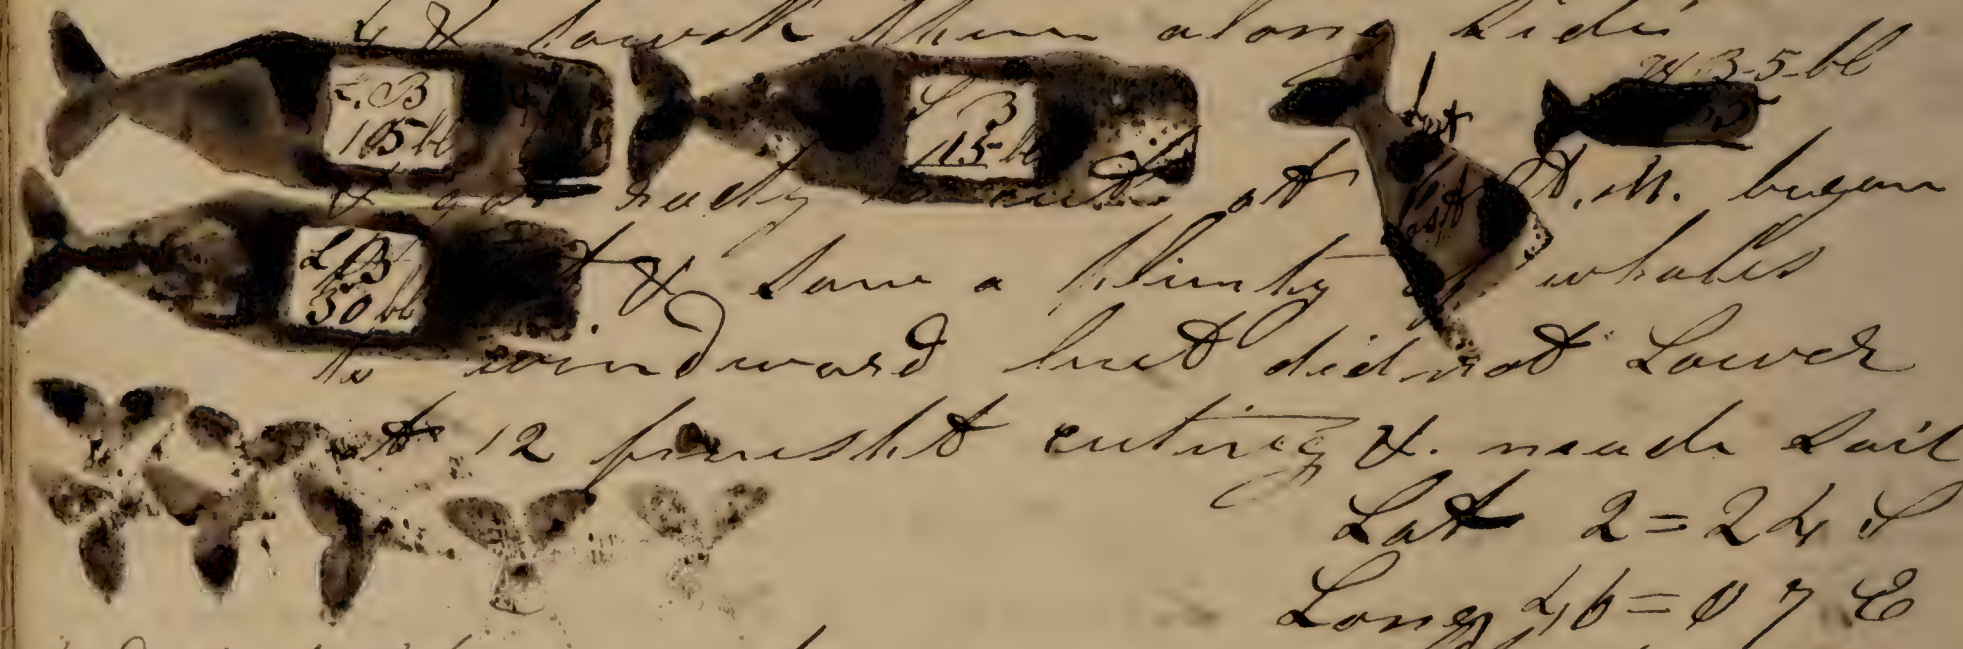 & towock them along Side
W 3-5-bl
L. B
105 bl
B
115-bl
& got redy to cut at A.M. began
L B
50 bl
lost
& saw a plinty of whales
to windward but did not Lower
at 12 finesht cuting & made Sail
Lat 2=24 S
Long 46=07 E